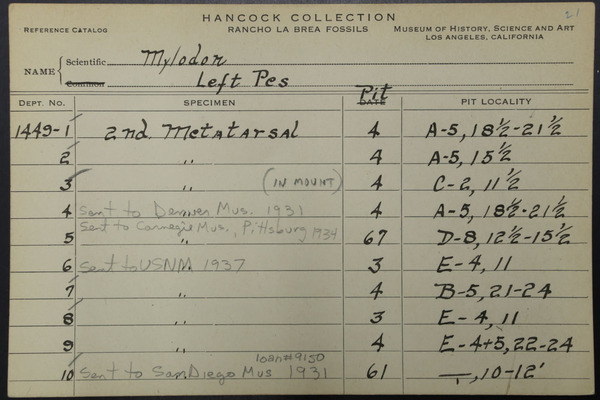 HANCOCK COLLECTION
21
REFERENCE CATALOG RANCHO LA BREA FOSSILS MUSEUM OF HISTORY, SCIENCE AND ART
LOS ANGELES, CALIFORNIA
NAME Scientific Mylodon
Common Left Pes
DEPT. NO. SPECIMEN DATE Pit PIT LOCALITY
1449-1 2nd. Metatarsal 4 A-5, 18½-21½
2 " 4 A-5, 15½
3 " (IN MOUNT) 4 C-2, 11½
4 Sent to Denver Mus. 1931 4 A-5, 18½-21½
5 Sent to Carnegie Mus., Pittsburg 1934 " 67 D-8, 12½-15½
6 Sent to USNM 1937 3 E-4, 11
7 " 4 B-5, 21-24
8 " 3 E-4, 11
9 " 4 E-4+5, 22-24
loan#9150
10 Sent to San Diego Mus 1931 61 —, 10-12'